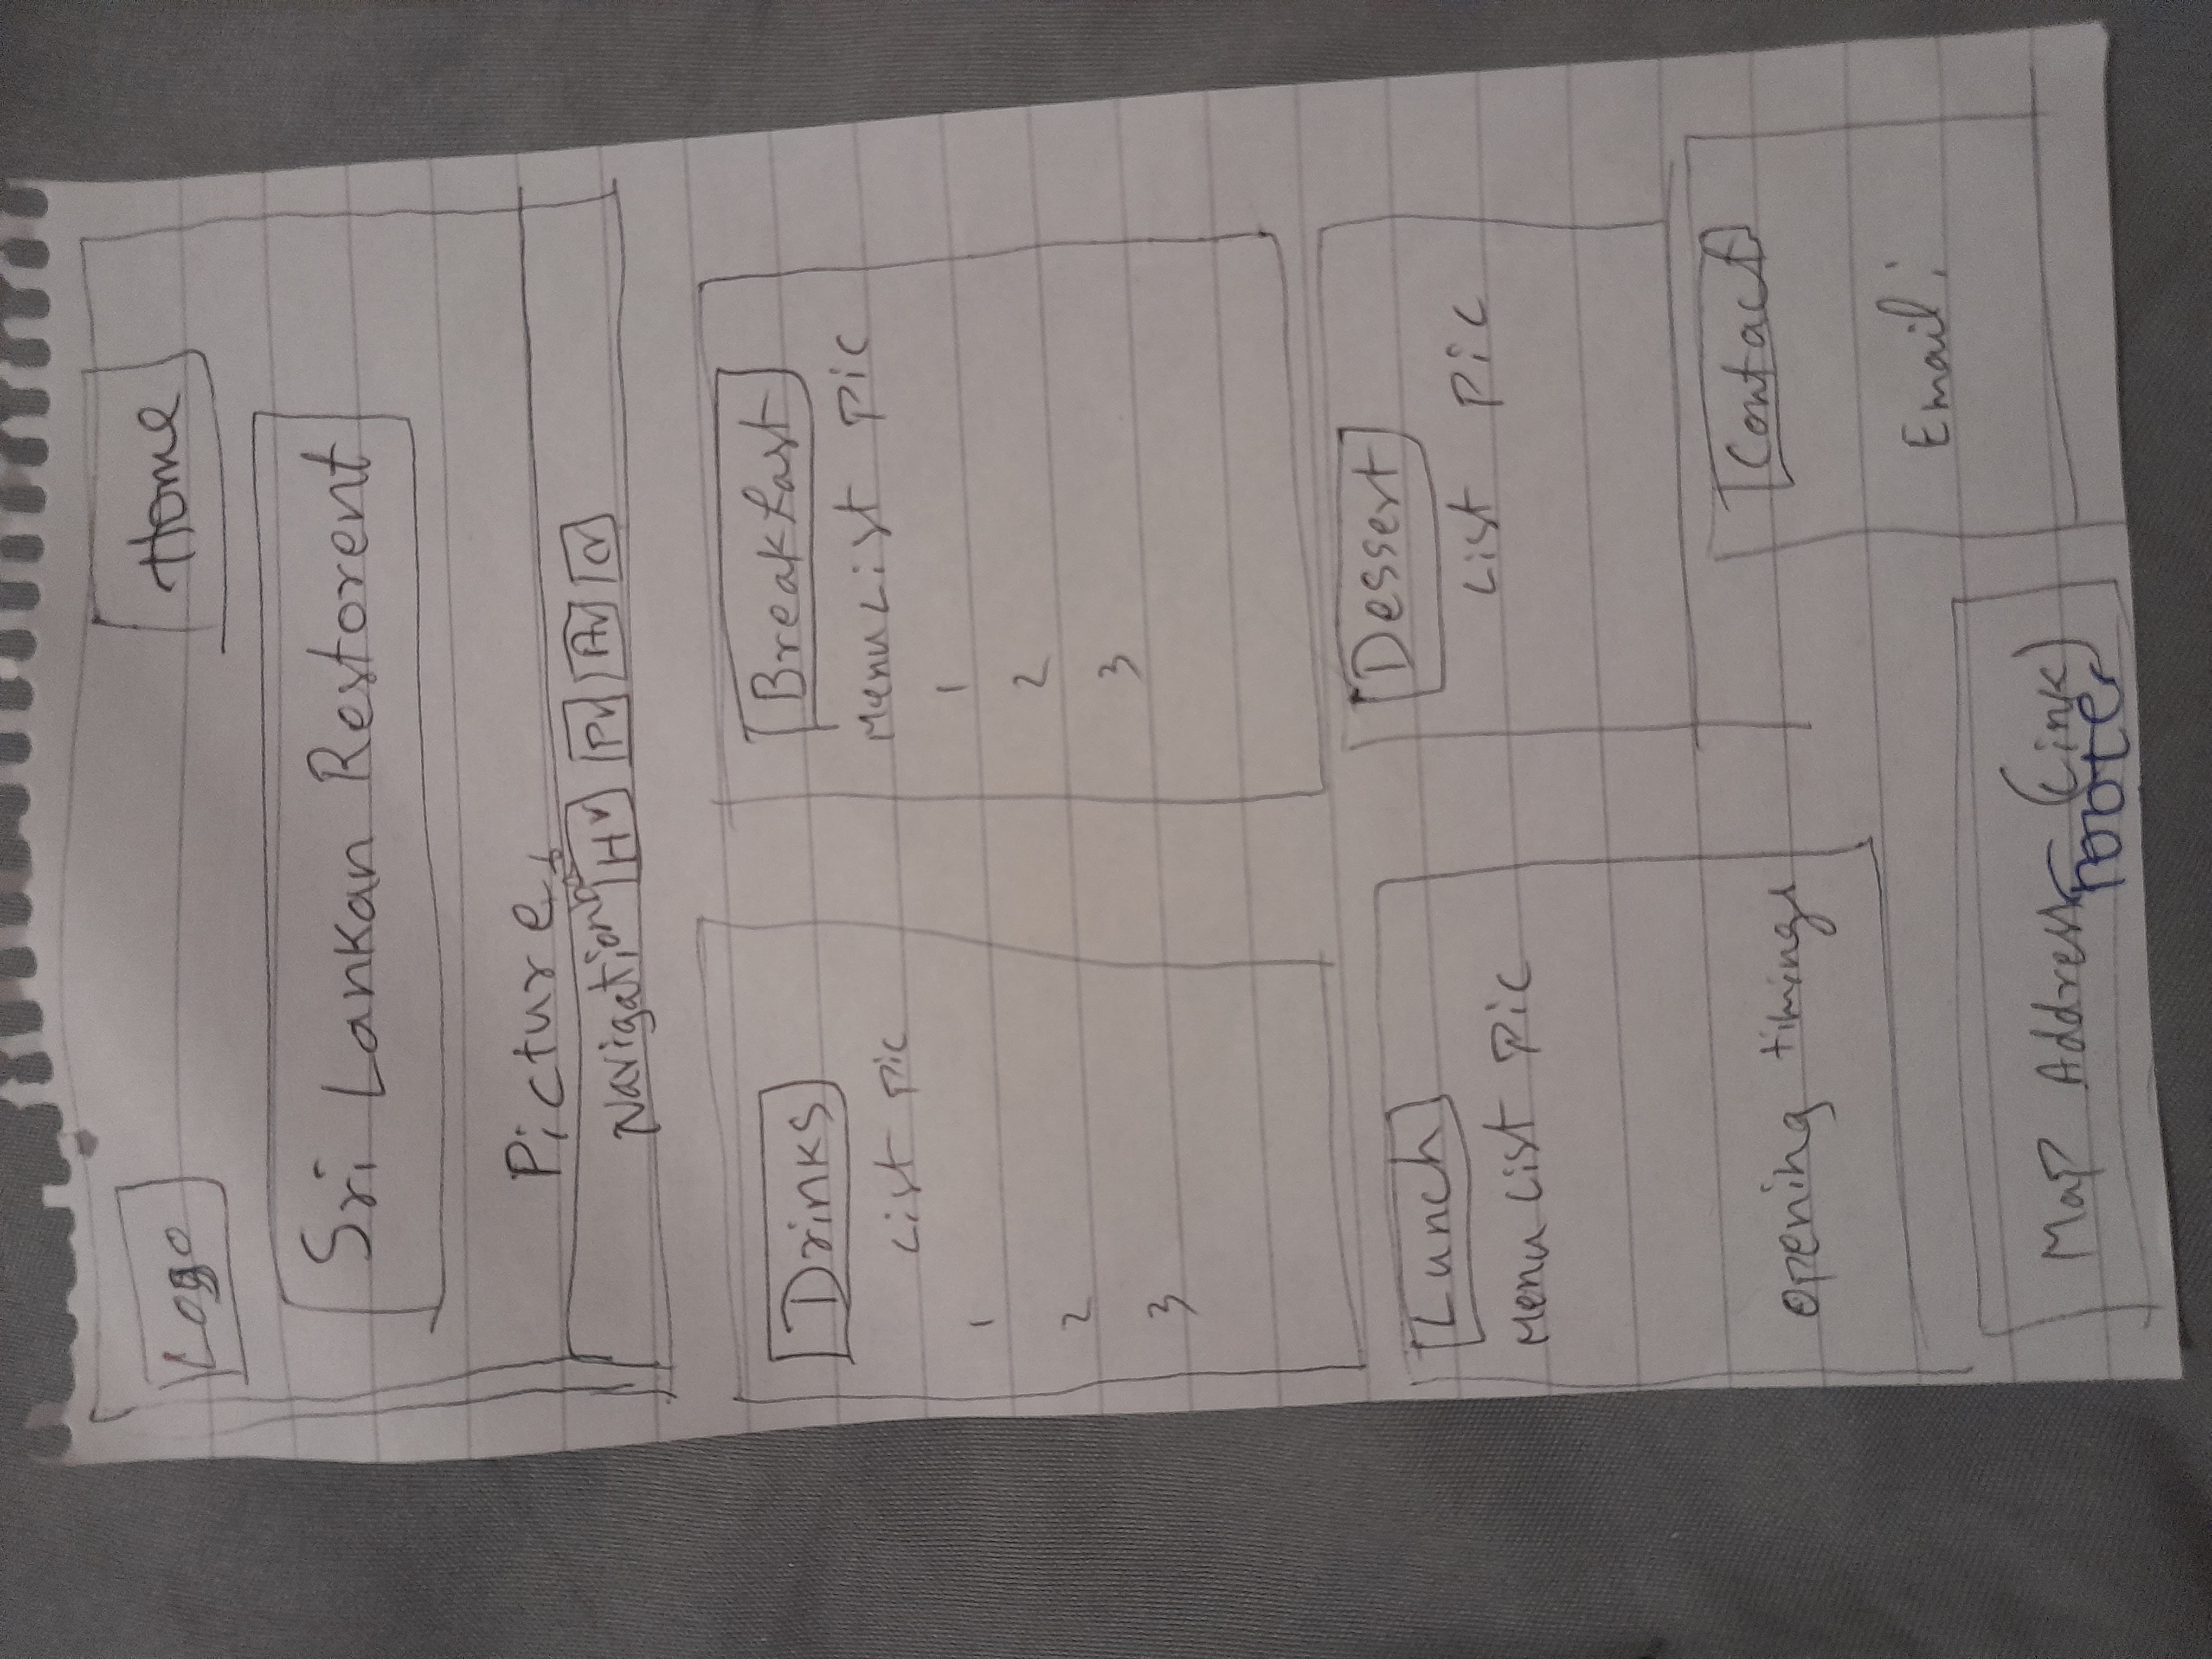 Logo
Home
Sri Lankan Restorent
Picture
Navigation bar H P A C
Drinks
List Pic
1
2
3
Breakfast
Menu List Pic
1
2
3
Lunch
Menu List Pic
opening timings
Dessert
List Pic
Contact
Email:
Map Address (Link)
Footer